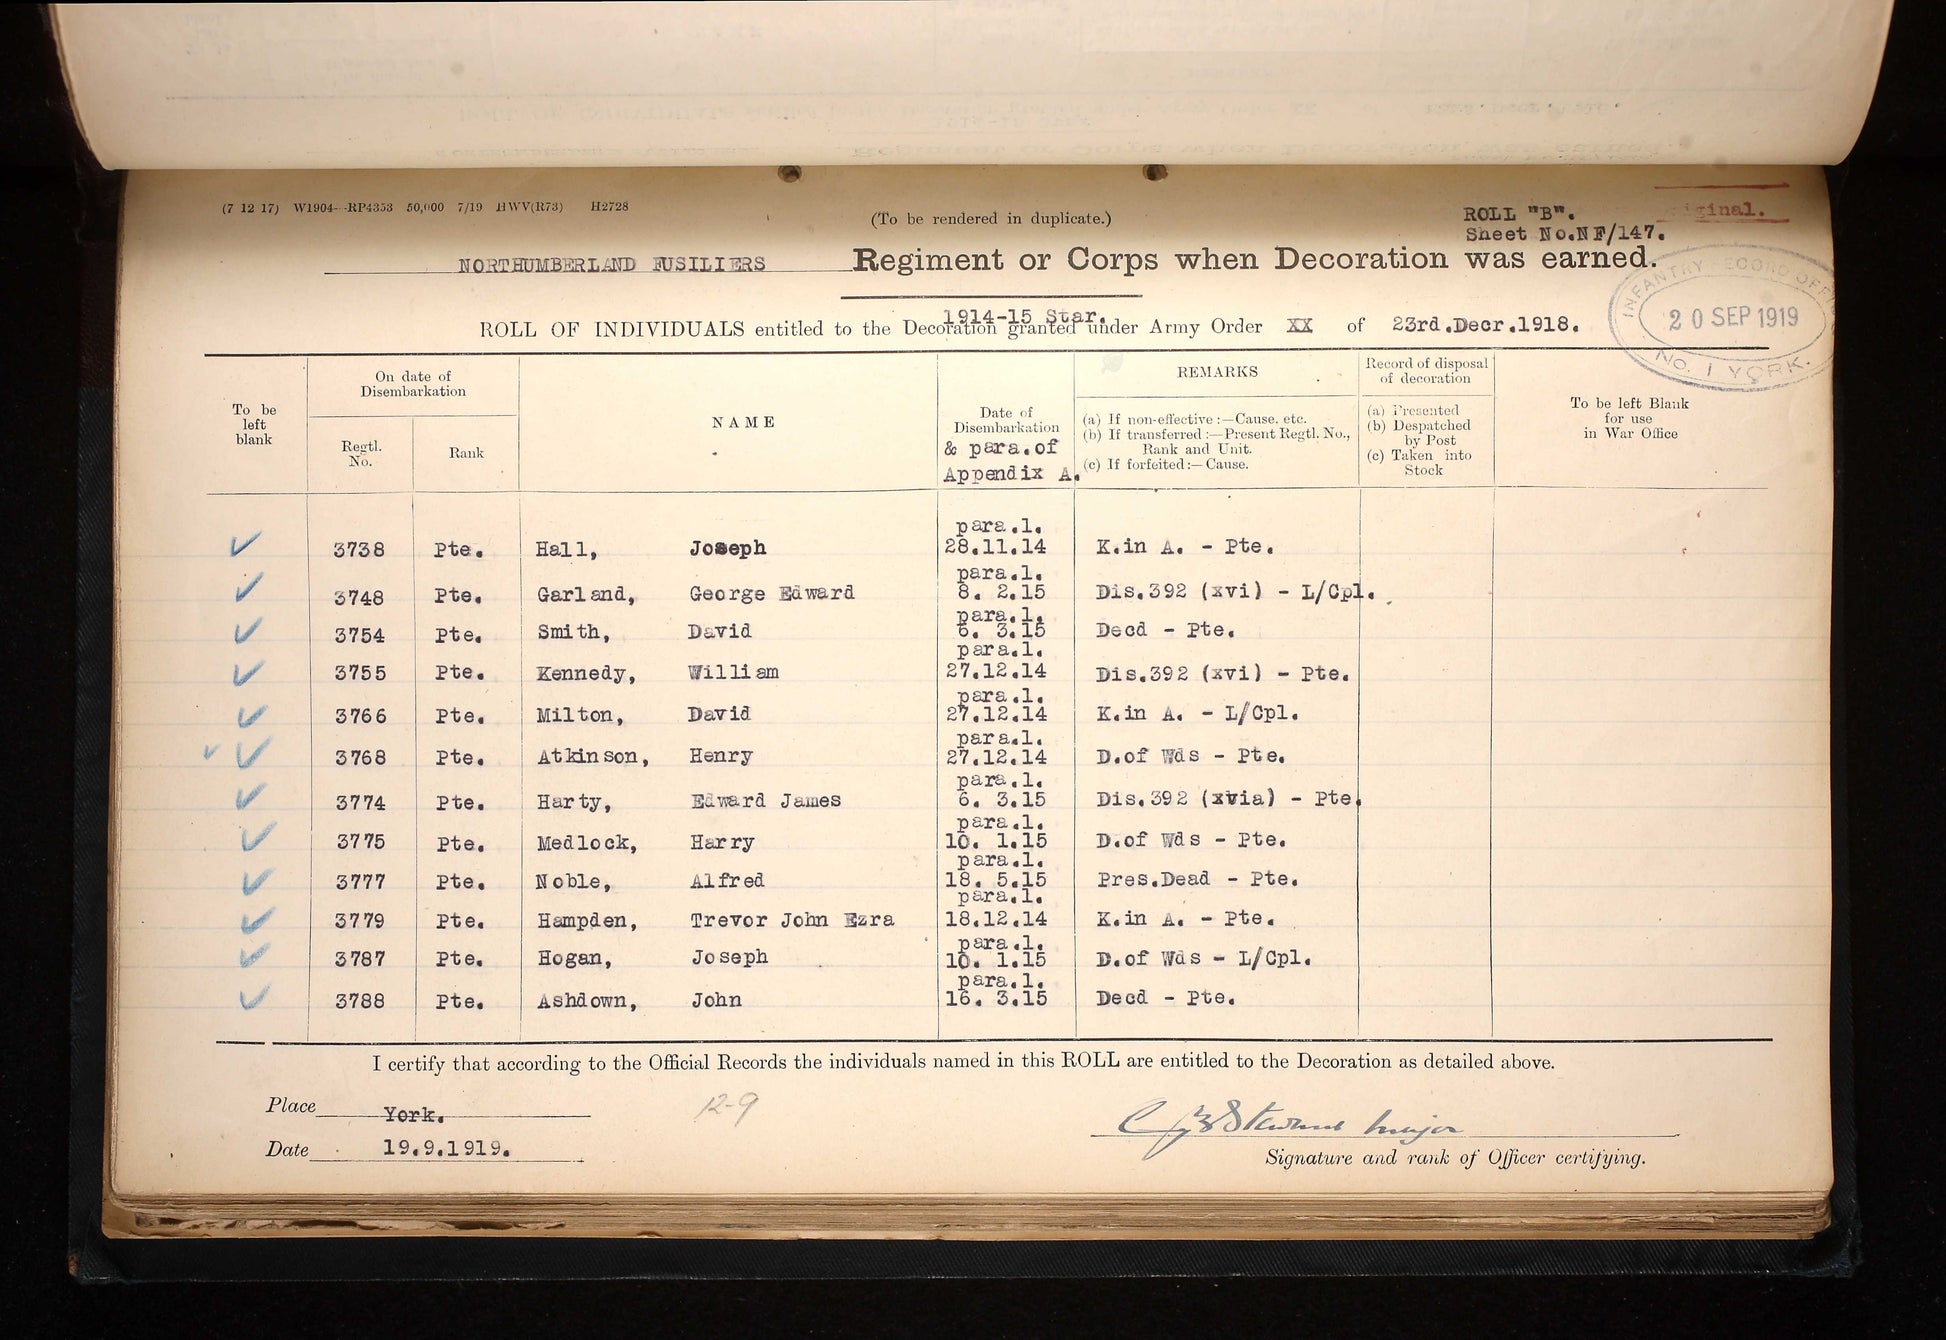 (7 12 17) W1904--RP4353 50,000 7/19 HWV(R73) H2728
(To be rendered in duplicate.)
ROLL "B".
Sheet No.NF/147.
NORTHUMBERLAND FUSILIERS Regiment or Corps when Decoration was earned.
INFANTRY RECORD OFFICE
20 SEP 1919
NO. 1 YORK.
1914-15 Star.
ROLL OF INDIVIDUALS entitled to the Decoration granted under Army Order XX of 23rd.Decr.1918.
To be left blank
On date of Disembarkation
Regtl. No.
Rank
NAME
Date of Disembarkation
& para.of
Appendix A.
REMARKS
(a) If non-effective :—Cause. etc.
(b) If transferred :—Present Regtl. No.,
Rank and Unit.
(c) If forfeited :— Cause.
Record of disposal
of decoration
(a) Presented
(b) Despatched
by Post
(c) Taken into
Stock
To be left Blank
for use
in War Office
para.1.
3738 Pte. Hall, Joseph 28.11.14 K.in A. - Pte.
para.1.
3748 Pte. Garland, George Edward 8. 2.15 Dis.392 (xvi) - L/Cpl.
para.1.
3754 Pte. Smith, David 6. 3.15 Decd - Pte.
para.1.
3755 Pte. Kennedy, William 27.12.14 Dis.392 (xvi) - Pte.
para.1.
3766 Pte. Milton, David 27.12.14 K.in A. - L/Cpl.
para.1.
3768 Pte. Atkinson, Henry 27.12.14 D.of Wds - Pte.
para.1.
3774 Pte. Harty, Edward James 6. 3.15 Dis.392 (xvia) - Pte.
para.1.
3775 Pte. Medlock, Harry 10. 1.15 D.of Wds - Pte.
para.1.
3777 Pte. Noble, Alfred 18. 5.15 Pres.Dead - Pte.
para.1.
3779 Pte. Hampden, Trevor John Ezra 18.12.14 K.in A. - Pte.
para.1.
3787 Pte. Hogan, Joseph 10. 1.15 D.of Wds - L/Cpl.
para.1.
3788 Pte. Ashdown, John 16. 3.15 Decd - Pte.
I certify that according to the Official Records the individuals named in this ROLL are entitled to the Decoration as detailed above.
Place York.
12-9
Major
Date 19.9.1919.
Signature and rank of Officer certifying.